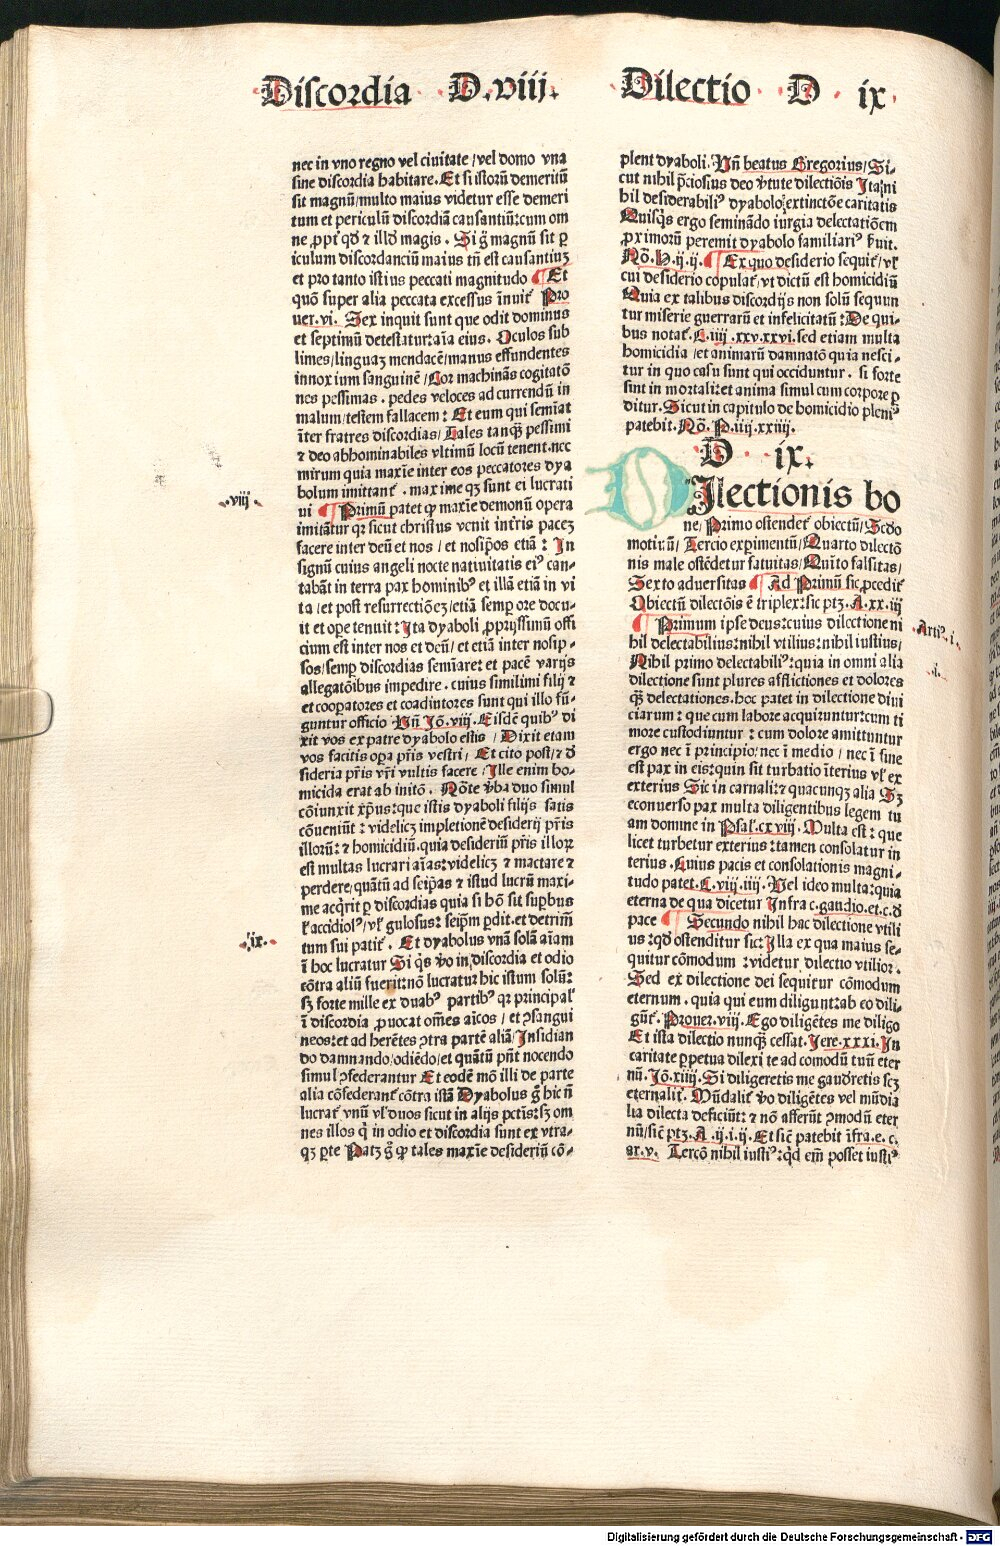 Discordia D.viij. Dilectio D ix
nec in vno regno vel ciuitate / vel domo vna
sine discordia habitare. Et si istorũ demeritũ
sit magnũ / multo maius videtur esse demeri
tum et periculũ discordiã causantiũ: cum om
ne ꝓpt̃ qd̃ ⁊ illd̃ magis. Si g̃ magnũ sit ꝑ
iculum discordanciũ maius tñ est causantiuꝫ
et pro tanto istius peccati magnitudo ¶ Et
quõ super alia peccata excessus ĩnuit̃ Pro
uer. vi. Sex inquit sunt que odit dominus
et septimũ detestatur: aĩa eius. Oculos sub
limes / linguaꝫ mendacẽ / manus effundentes
innoxium sanguinẽ / Cor machinãs cogitatõ
nes pessimas. pedes veloces ad currendũ in
malum / testem fallacem: Et eum qui semĩat
ĩter fratres discordias / Tales tanqꝫ pessimi
⁊ deo abhominabiles vltimũ locũ tenent. nec
mirum quia maxĩe inter eos peccatores dya
bolum imittant̃. maxime qꝫ sunt ei lucrati
.viij. ui ¶ Primũ patet ꝙ maxĩe demonũ opera
imitãtur qꝛ sicut christus venit int̃ris paceꝫ
facere inter deũ et nos / et nosip̃os etiã: In
signũ cuius angeli nocte natiuitatis eiꝰ can-
tabãt in terra pax hominibꝰ et illã etiã in vi
ta / et post resurrectiõeꝫ / etiã semp̱ ore docu-
it et oꝑe tenuit: Ita dyaboli ꝓprijssimũ offi
cium est inter nos et deũ / et etiã inter nosip̃-
sos / semꝑ discordias semĩare: et pacẽ varijs
allegatõibus impedire. cuius similimi filij ⁊
et cooꝑatores et coadiutores sunt qui illo fũ-
guntur officio Vñ Jõ. viij. Eisdẽ quibꝰ di
xit vos ex patre dyabolo estis / Dixit etiam
vos facitis oꝑa pr̃is vestri / Et cito post / ⁊ d̃
sideria pr̃is vr̃i vultis facere / Ille enim ho-
micida erat ab initõ. Nõte v̓ba duo simul
cõiunxit xp̃us: que istis dyaboli filijs satis
cõueniũt: videlicꝫ impletionẽ desiderij pr̃is
illorũ: ⁊ homicidiũ. quia desideriũ pr̃is illoꝝ
est multas lucrari aĩas: videlicꝫ ⁊ mactare ⁊
perdere / quãtũ ad seip̃as ⁊ istud lucrũ maxi-
me acq̃rit ꝑ discordias quia si hõ sit suꝑbus
ł accidiolꝰ / vł gulosus: seip̃m ꝑdit. et detrim̃
.ix. tum sui patit̃. Et dyabolus vnã solã aĩam
ĩ hoc lucratur Si q̃s v̓o in discordia et odio
cõtra aliũ fuerit: nõ lucratur hic istum solũ:
sꝫ forte mille ex duabꝰ partibꝰ qꝛ principal̓
ĩ discordia ꝓuocat om̃es aĩcos / et ↄsangui
neos: et ad herẽtes ↄtra partẽ aliã / Insidian
do damnando / odiẽdo / et quãtũ pñt nocendo
simul ↄfederantur Et eodẽ mõ illi de parte
alia cõfederant̃ cõtra istã Dyabolus g̃ hic ñ
lucrat̃ vnũ vł duos sicut in alijs pctĩs: sꝫ om
nes illos q̃ in odio et discordia sunt ex vtra-
qꝫ ꝑte Patꝫ g̃ ꝙ tales maxĩe desideriũ cõ-
plent dyaboli. Vñ beatus Gregorius / Si-
cut nihil p̃ciosius deo v̓tute dilectiõis Ita ni
hil desiderabiliꝰ dyabolo: extinctõe caritatis
Quisq̃s ergo seminãdo iurgia delectatiõem
ꝓximorũ peremit dyabolo familiariꝰ ẜuit.
Nõ. H. ij. ij. ¶ Ex quo desiderio sequit̃ / vł
cui desiderio copulat̃ / vt dictũ est homicidiũ
Quia ex talibus discordijs non solũ sequun
tur miserie guerrarũ et infelicitatũ: De qui-
bus notat̃. C. iiij. xxv. xxvi. sed etiam multa
homicidia / et animarũ damnatõ quia nesci-
tur in quo casu sunt qui occiduntur. si forte
sint in mortali: et anima simul cum corpore ꝑ
ditur. Sicut in capitulo de homicidio pleniꝰ
patebit. Nõ. P. iiij. xxiiij.
D ix.
DIlectionis bo
ne / Primo ostendet̃ obiectũ / Scdo
motiuũ / Tercio exꝑimentũ / Quarto dilectõ
nis male ostẽdetur fatuitas / Quĩto falsitas /
Sexto aduersitas ¶ Ad Primũ sic ꝓcedit̃
Obiectũ dilectõis ẽ triplex: sic ptꝫ. A. xx. iij
¶ Primum ipse deus: cuius dilectione ni Arti. i.
hil delectabilius: nihil vtilius: nihil iustius /
Nihil primo delectabiliꝰ: quia in omni alia .i.
dilectione sunt plures afflictiones et dolores
qꝫ delectationes. hoc patet in dilectione diui
ciarum: que cum labore acquiruntur: cum ti
more custodiuntur: cum dolore amittuntur
ergo nec ĩ principio / nec ĩ medio / nec ĩ fine
est pax in eis: quin sit turbatio ĩterius vł ex
exterius Sic in carnali: ⁊ quacunqꝫ alia Sꝫ
econuerso pax multa diligentibus legem tu
am domine in Psal̓. cxviij. Multa est: que
licet turbetur exterius: tamen consolatur in
terius. Cuius pacis et consolationis magni-
tudo patet. C. viij. iiij. Vel ideo multa: quia
eterna de qua dicetur Infra c. gaudio. et. c. d̃
pace ¶ Secundo nihil hac dilectione vtili
us: qd̃ ostenditur sic: Illa ex qua maius se-
quitur cõmodum: videtur dilectio vtilior.
Sed ex dilectione dei sequitur cõmodum
eternum. quia qui eum diligunt: ab eo dili-
gũt̃. Prouer. viij. Ego diligẽtes me diligo
Et ista dilectio nunqꝫ cessat. Jere. xxxi. In
caritate ꝑpetua dilexi te ad comodũ tuũ eter
nũ. Jõ. xiiij. Si diligeretis me gaudretis scꝫ
eternalit̃. Mũdalit̃ v̓o diligẽtes vel mũdia
lia dilecta deficiũt: ⁊ nõ afferũt ↄmodũ eter
nũ / sic̃ ptꝫ. A. ij. i. ij. Et sic̃ patebit ĩfra. e. c.
ar. v. Tercõ nihil iustiꝰ: qd̃ em̃ posset iustiꝰ
Digitalisierung gefördert durch die Deutsche Forschungsgemeinschaft - DFG